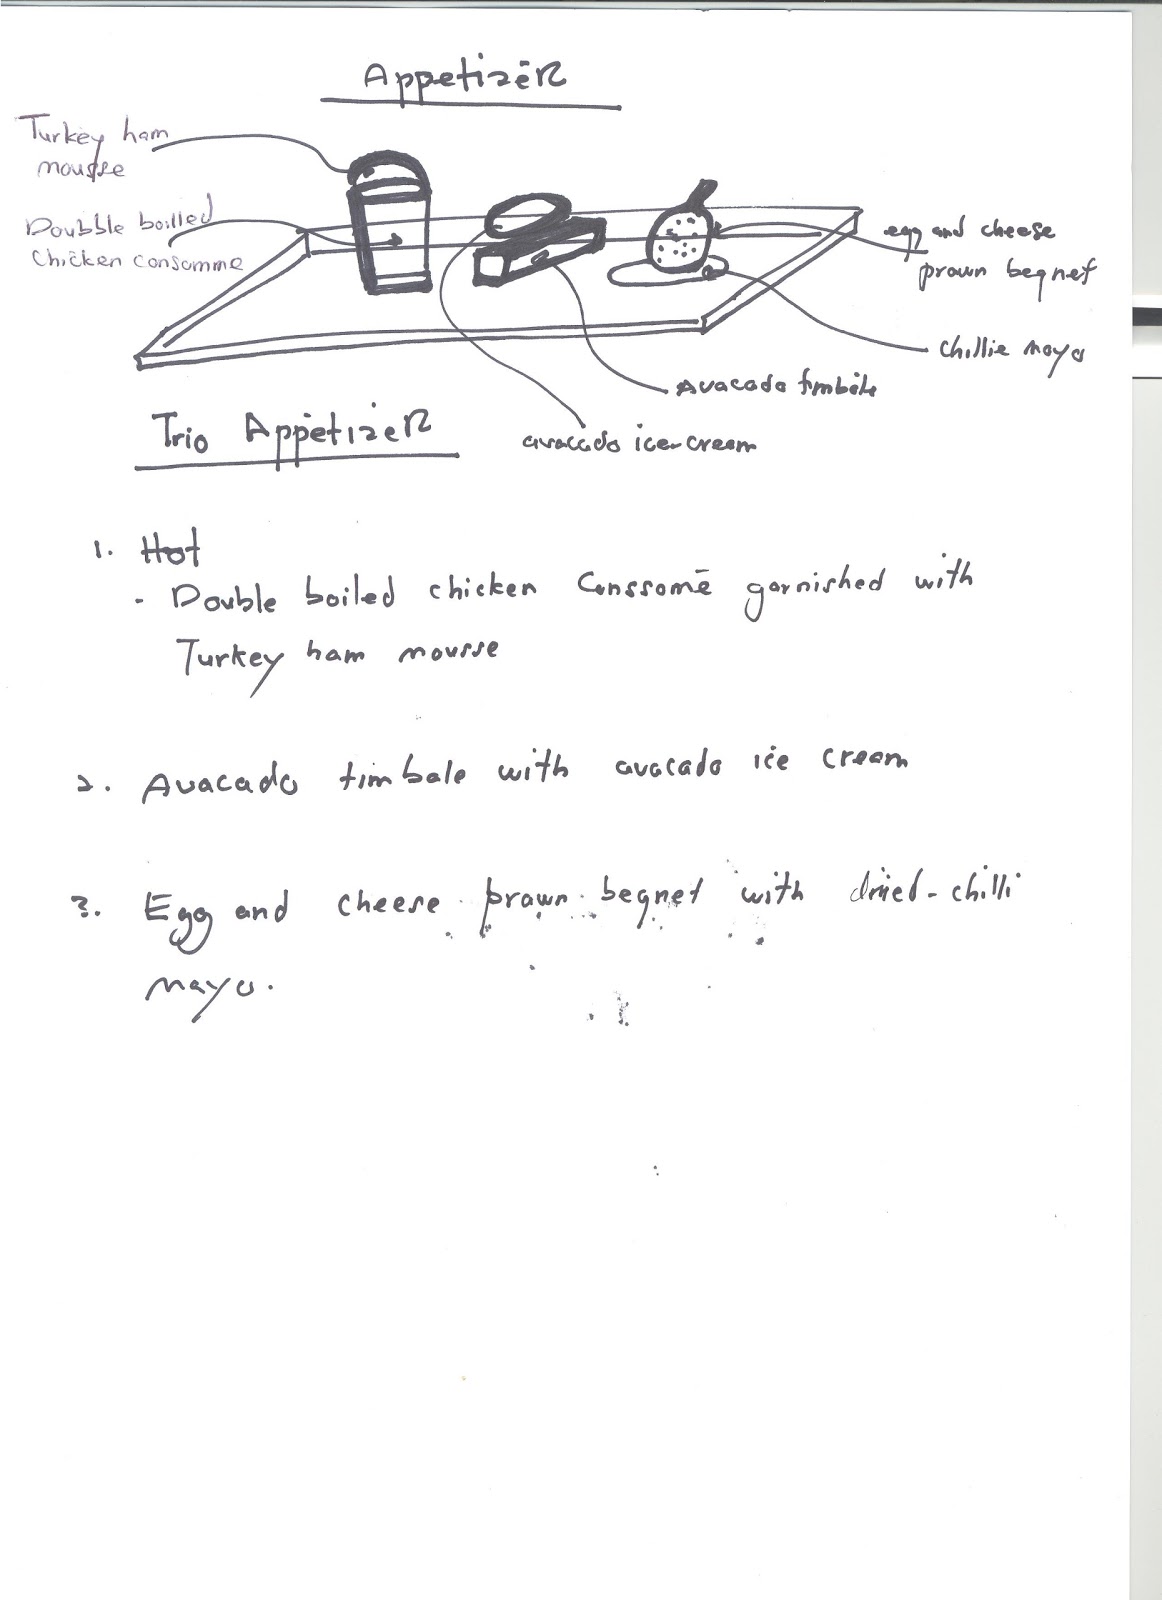 Appetizer
Turkey ham
mousse
Doubble boilled
Chicken consomme
egg and cheese
prawn begnet
chillie mayo
Avacado timbale
avacado ice-cream
Trio Appetizer
1. Hot
- Double boiled chicken Conssomē garnished with
Turkey ham mousse
2. Avacado timbale with avocado ice cream
3. Egg and cheese prawn begnet with dried-chilli
mayo.